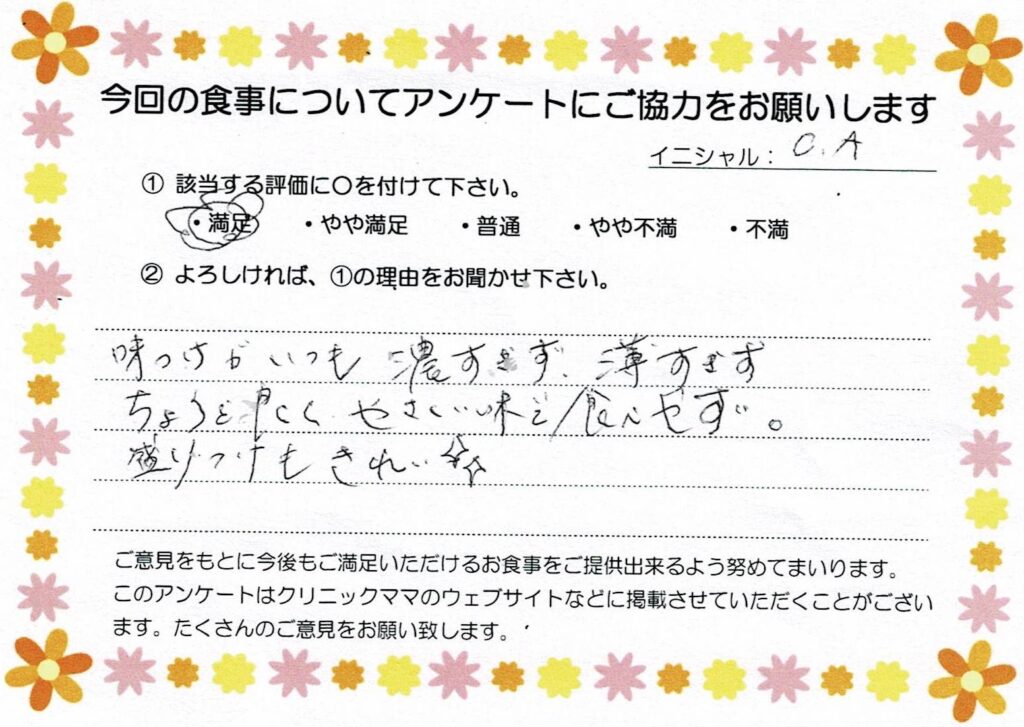 今回の食事についてアンケートにご協力をお願いします
イニシャル： O.A
① 該当する評価に○を付けて下さい。
・満足 ・やや満足 ・普通 ・やや不満 ・不満
② よろしければ、①の理由をお聞かせ下さい。
味つけがいつも 濃すぎず、薄すぎず
ちょうど良く やさしい味で食べやす。
盛りつけもきれい
ご意見をもとに今後もご満足いただけるお食事をご提供出来るよう努めてまいります。
このアンケートはクリニックママのウェブサイトなどに掲載させていただくことがござい
ます。たくさんのご意見をお願い致します。